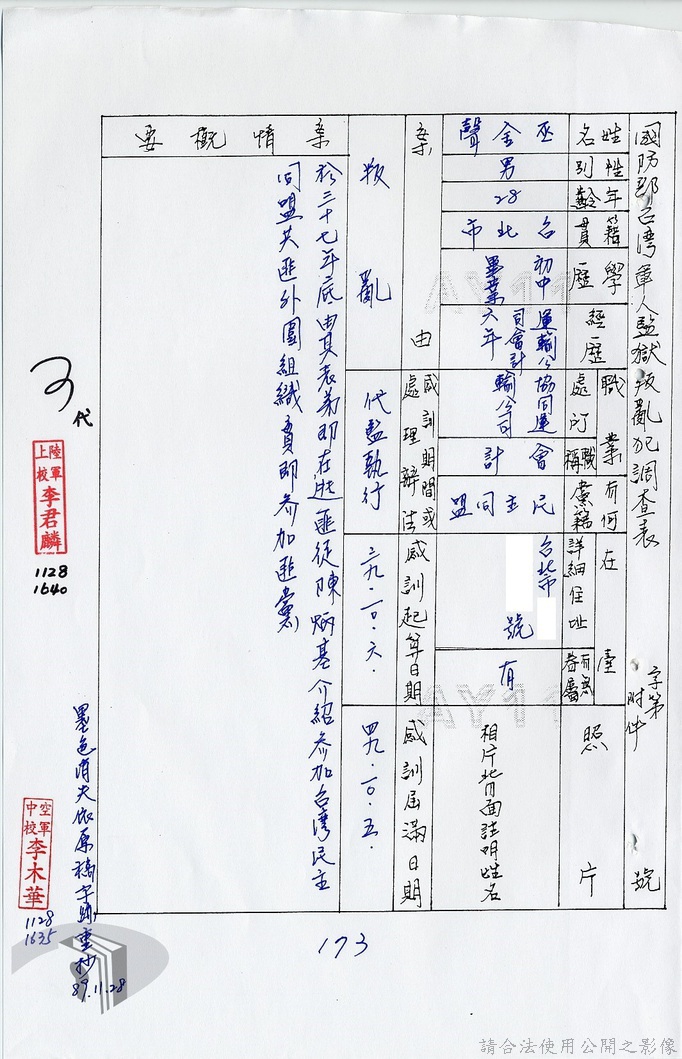 國防部台湾軍人監獄叛亂犯調查表
字第 號
附件
姓名
巫金聲
性別
男
年齡
28
籍貫
台北市
學歷
初中畢業
經歷
運輸公司會計六年
職業
處所
協同運輸公司
職稱
會計
有何黨籍
民主同盟
在臺
詳細住址
台北市
號
有無眷屬
有
照片
相片背面註明姓名
案由
叛亂
感訓期間或處理辦法
代監執行
感訓起算日期
三九.一〇.六.
感訓屆滿日期
四九.一〇.五.
案情概要
於三十七年底由其表弟即在逃匪徒陳炳基介紹參加台湾民主
同盟共匪外圍組織貢即参加匪黨
代
陸軍上校李君麟
1128
1640
墨色消失依原稿字跡重抄
89.11.28
空軍中校李木華
1128
1635
173
請合法使用公開之影像